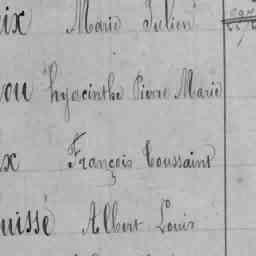 ix Marie Julien
ou hyacinthe Pierre Marie
x François Toussaint
uissé Albert Louis